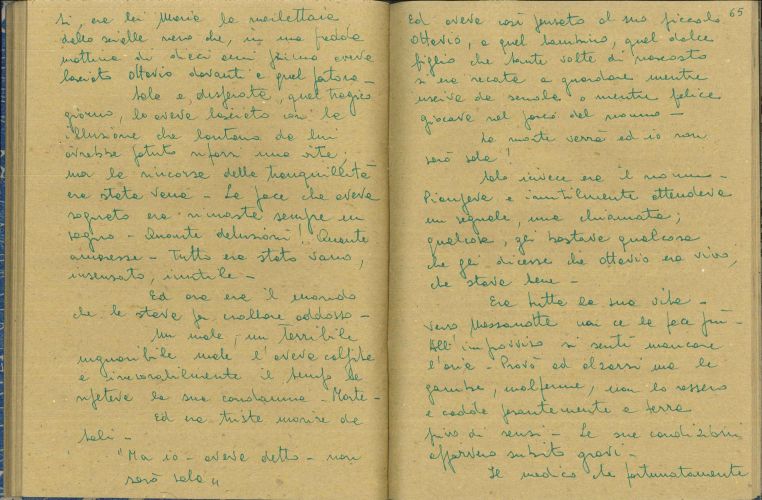 Sì, era lei Maria la
dallo scialle nero che, in una fredda
mattina di dieci anni prima aveva
lasciato Ottavio davanti a quel
Sola e, disperata, quel tragico
giorno, lo aveva lasciato con la
illusione che lontana da lui
avrebbe potuto rifarsi una vita;
ma la rincorsa della tranquillità
era stata vana - La pace che aveva
sognato era rimasta sempre un
sogno - Quante delusioni! Quante
amarezze - Tutto era stato vano,
insensato, inutile -
Ed ora era il mondo
che le stava per crollare addosso -
Un male, un terribile
inguaribile male l'aveva colpita
e inesorabilmente il tempo le
ripeteva la sua condanna - Morte -
Ed era triste morire da
soli -
"Ma io - aveva detto - non
sarò sola"
65
Ed aveva così pensato al suo piccolo
Ottavio, a quel bambino, quel dolce
figlio che tante volte di nascosto
si era recata a guardare mentre
usciva da scuola o mentre felice
giocava nel parco del nonno -
La morte verrà ed io non
sarò sola!
Solo invece era il nonno -
Piangeva e inutilmente attendeva
un segnale, una chiamata;
qualcosa, gli bastava qualcosa
che gli dicesse che Ottavio era vivo,
che stava bene -
Era tutta la sua vita -
Verso Mezzanotte non ce la fece più -
All'improvviso si sentì mancare
l'aria - Provò ad alzarsi ma le
gambe, malferme, non lo ressero
e cadde pesantemente a terra
privo di sensi - Le sue condizioni
apparvero subito gravi -
Il medico che fortunatamente